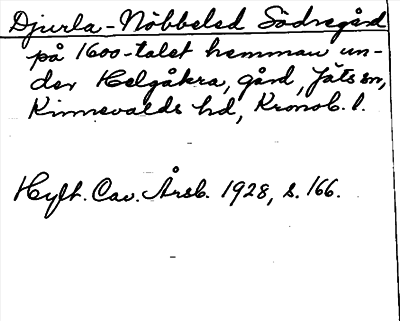 Djurla-Nöbbeled Södregård
på 1600-talet hemman un-
der Helgåkra, gård, Jäts sn,
Kinnevalds hd, Kronob. l.
Hylt. Cav. Årsb. 1928, s. 166.